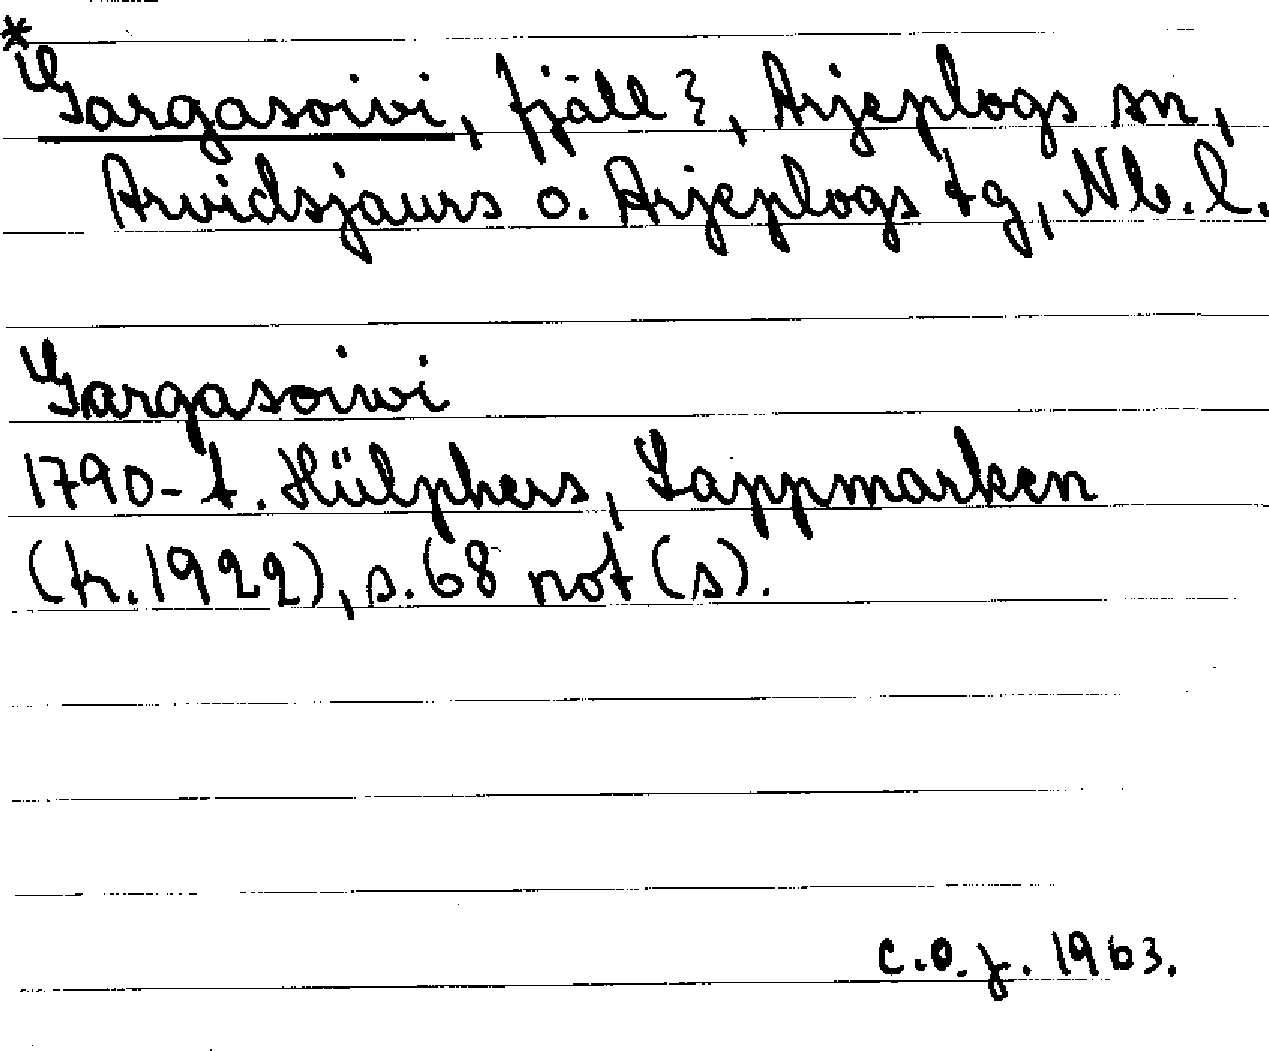 *Gargasoivi, fjäll?, Arjeplogs sn,
Arvidsjaurs o. Arjeplogs tg, Nb. l.
Gargasoiwi
1790-t. Hülphers, Lappmarken
(tr. 1922), s. 68 not (s).
C.O.J. 1963.